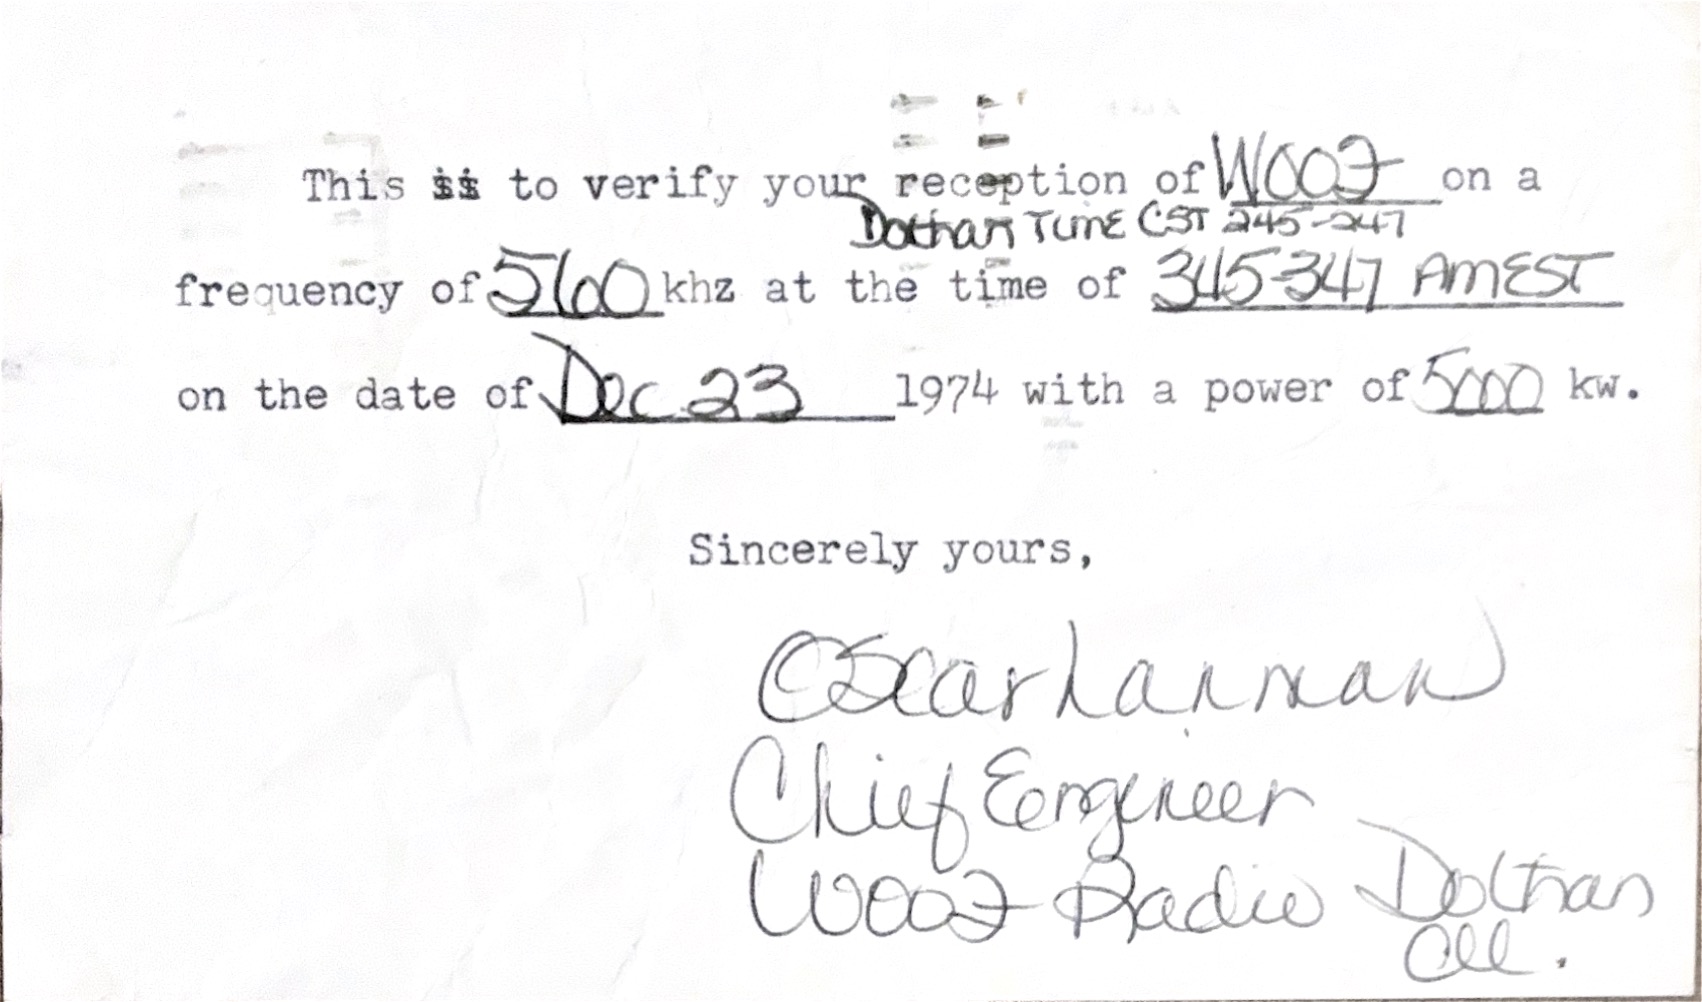 This is to verify your reception of WOOF on a
Dothan Time CST 245-247
frequency of 560 khz at the time of 345-347 AM EST
on the date of Dec 23 1974 with a power of 5000 kw.
Sincerely yours,
Oscar Lanman
Chief Engineer
WOOF Radio Dothan
All.